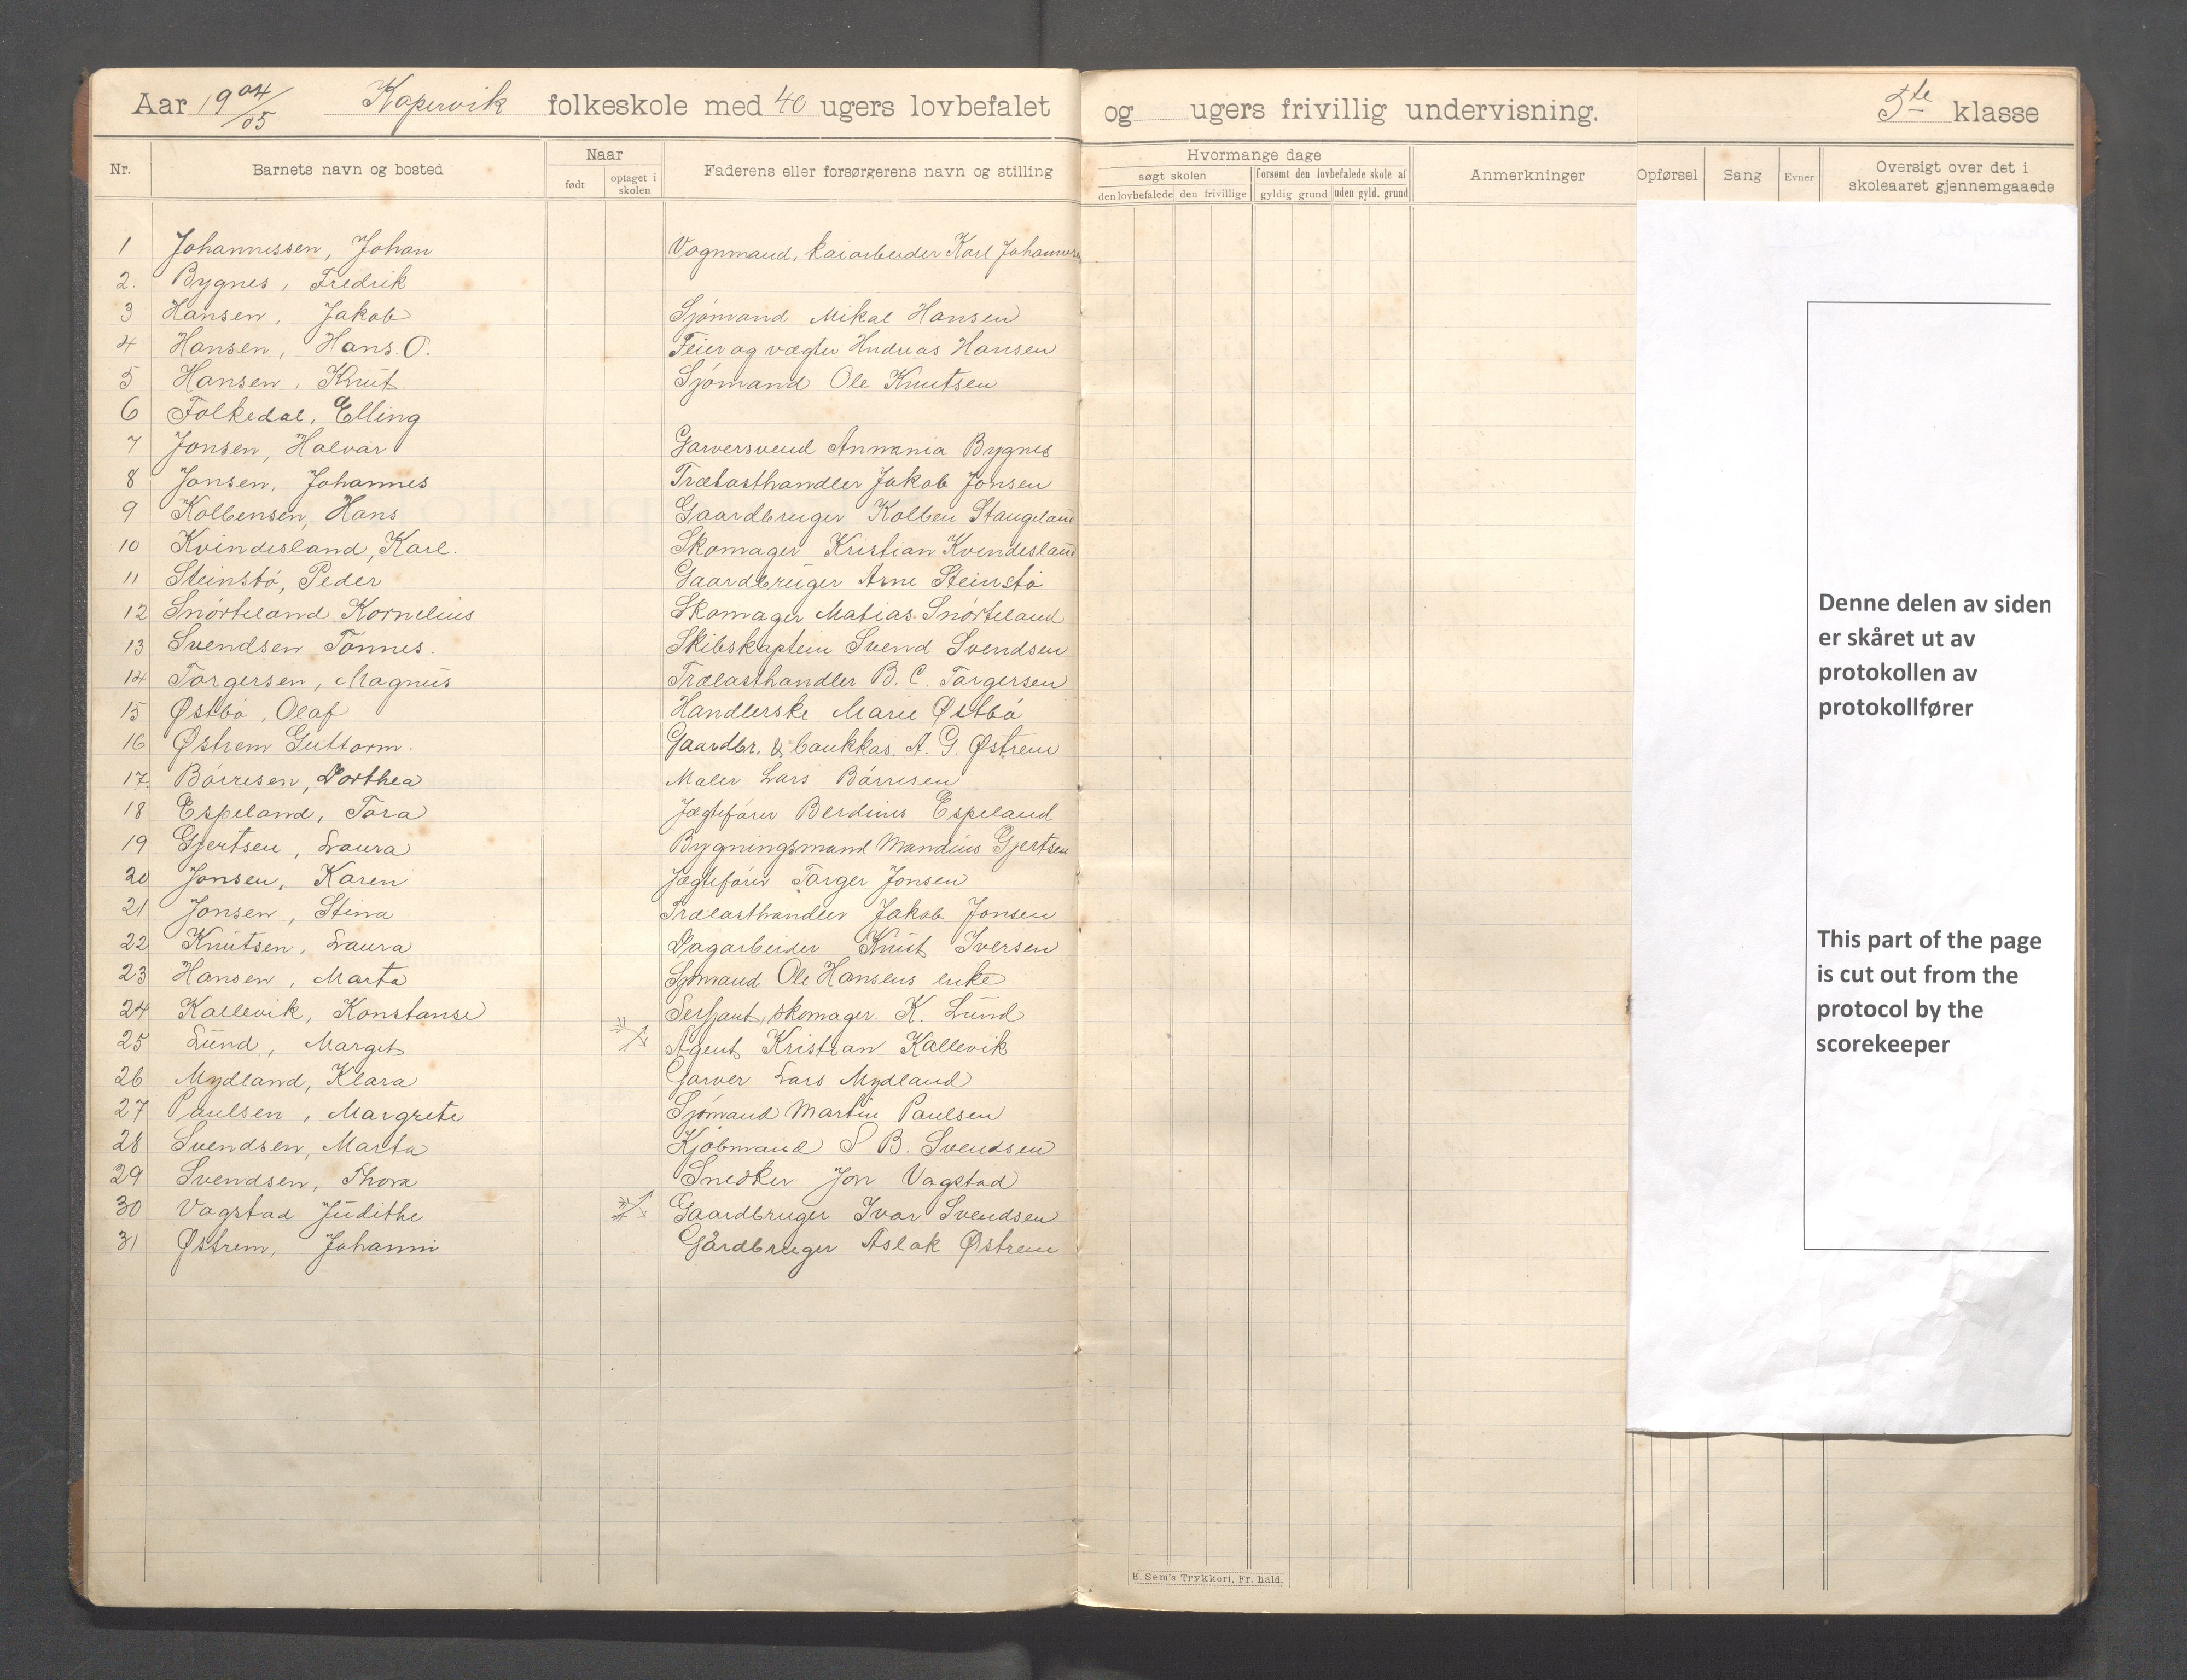 Aar 1904/05 Kopervik folkeskole med 40 ugers lovbefalet og ugers frivillig undervisning. 5te klasse
Nr. Barnets navn og bosted Naar født optaget i skolen Faderens eller forsørgerens navn og stilling Hvormange dage søgt skolen den lovbefalede den frivillige forsømt den lovbefalede skole af gyldig grund uden gyld. grund Anmerkninger Opførsel Sang Evner Oversigt over det i skoleaaret gjennemgaaede
1 Johannessen, Johan Vognmand, kaiarbeider Karl Johannesen
2. Bygnes, Fredrik
3 Hansen, Jakob Sjømand Mikal Hansen
4 Hansen, Hans O. Feier og vægter Andreas Hansen
5 Hansen, Knut Sjømand Ole Knutsen
6 Folkedal, Elling
7 Jonsen, Halvar Garversvend Annania Bygnes
8 Jonsen, Johannes Trælasthandler Jakob Jonsen
9 Kolbensen, Hans Gaardbruger Kolben Stangeland
10 Kvindesland, Karl. Skomager Kristian Kvindesland
11 Steinstø, Peder Gaardbruger Arne Steinstø
12 Snørteland Kornelius Skomager Matias Snørteland
13 Svendsen Tønnes. Skibskaptein Svend Svendsen
14 Torgersen, Magnus Trælasthandler B. C. Torgersen
15 Østbø, Olaf Handlerske Marie Østbø
16 Østrem Guttorm. Gaardbr. & bankkas. A. G. Østrem
17 Børresen, Dorthea Maler Lars Børresen
18 Espeland, Tora Jægtefører Berdines Espeland
19 Gjertsen, Laura Bygningsmand Mandius Gjertsen
20 Jonsen, Karen Jægtefører Torger Jonsen
21 Jonsen, Stina Trælasthandler Jakob Jonsen
22 Knutsen, Laura Dagarbeider Knut Iversen
23 Hansen, Marta Sjømand Ole Hansens enke
24 Kallevik, Konstanse Sersjant, skomager. K. Lund
25 Lund, Margit Agent Kristian Kallevik
26 Mydland, Klara Garver Lars Mydland
27 Paulsen, Margrete Sjømand Martin Paulsen
28 Svendsen, Marta Kjøbmand S B. Svendsen
29 Svendsen, Thora Snedker Jon Vagstad
30 Vagstad Judithe Gaardbruger Ivar Svendsen
31 Østrem, Johanni Gårdbruger Aslak Østrem
E. Sem's Trykkeri, Fr. hald.
Denne delen av siden
er skåret ut av
protokollen av
protokollfører
This part of the page
is cut out from the
protocol by the
scorekeeper